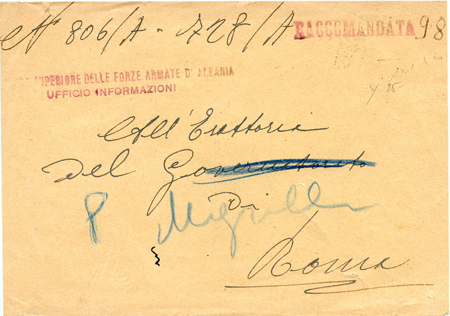 N° 806/A - 728/A RACCOMANDATA 98
SUPERIORE DELLE FORZE ARMATE D'ALBANIA
UFFICIO INFORMAZIONI
All'Esattoria
del Governatorato
di
8
Roma